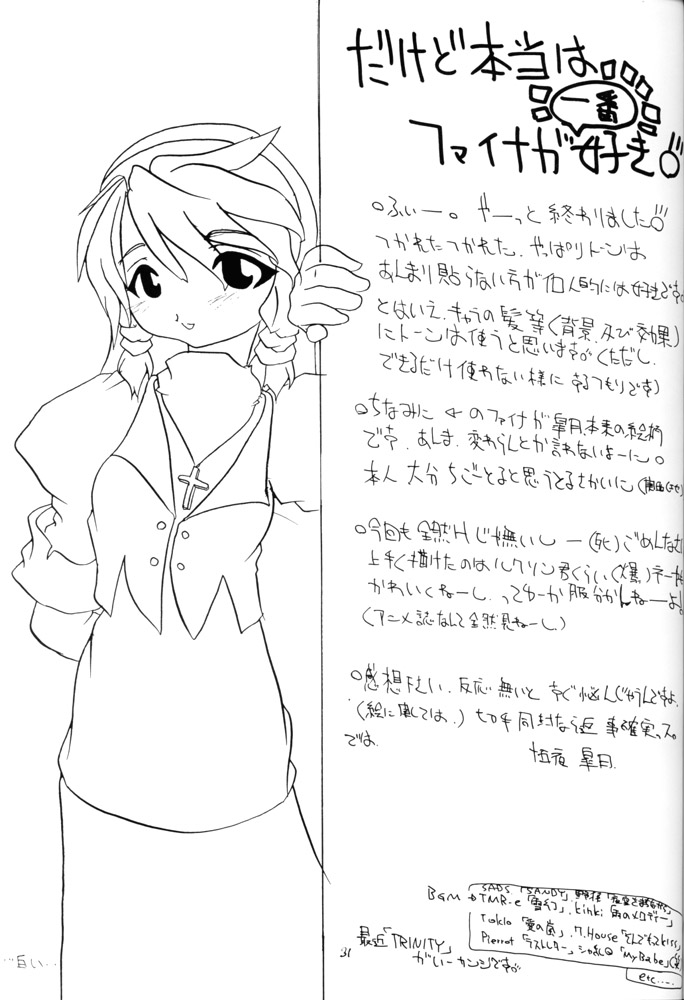 だけど本当は
一番
ファイナが好き
○ふぃー。やーっと終わりました
つかれたつかれた、やっぱりトーンは
あんまり貼らない方が個人的には好きです。
とはいえ、キャラの髪等(背景、及び効果)
にトーンは使うと思います。(ただし、
できるだけ使わない様にするつもりです)
○ちなみに ← のファイナが皐月本来の絵柄
です。あんま、変わらんとか言わないよーに。
本人 大分ちごとると思うとるさかいに
○今回も全然Hじゃ無いし ー(死)ごめんなさ
上手く描けたのは
くらい(爆)
かわいくねーし、ってゆーか服分かんねーよ!
(アニメ誌なんて全然見ねーし)
○感想下さい、反応無いとすぐ悩んじゃうんですよ、
(絵に関しては、)切手同封なら返事確実っス。
では、
皐月
BGM → SADS「SANDY」
TMR-e「雪幻」、Kinki「雨のメロディー」
Tokio「愛の嵐」、T.House「そんでもってkiss」
Pierrot「ラストレター」シャ乱Q「My Babe」
etc....
最近「TRINITY」
がいーカンジです。
31